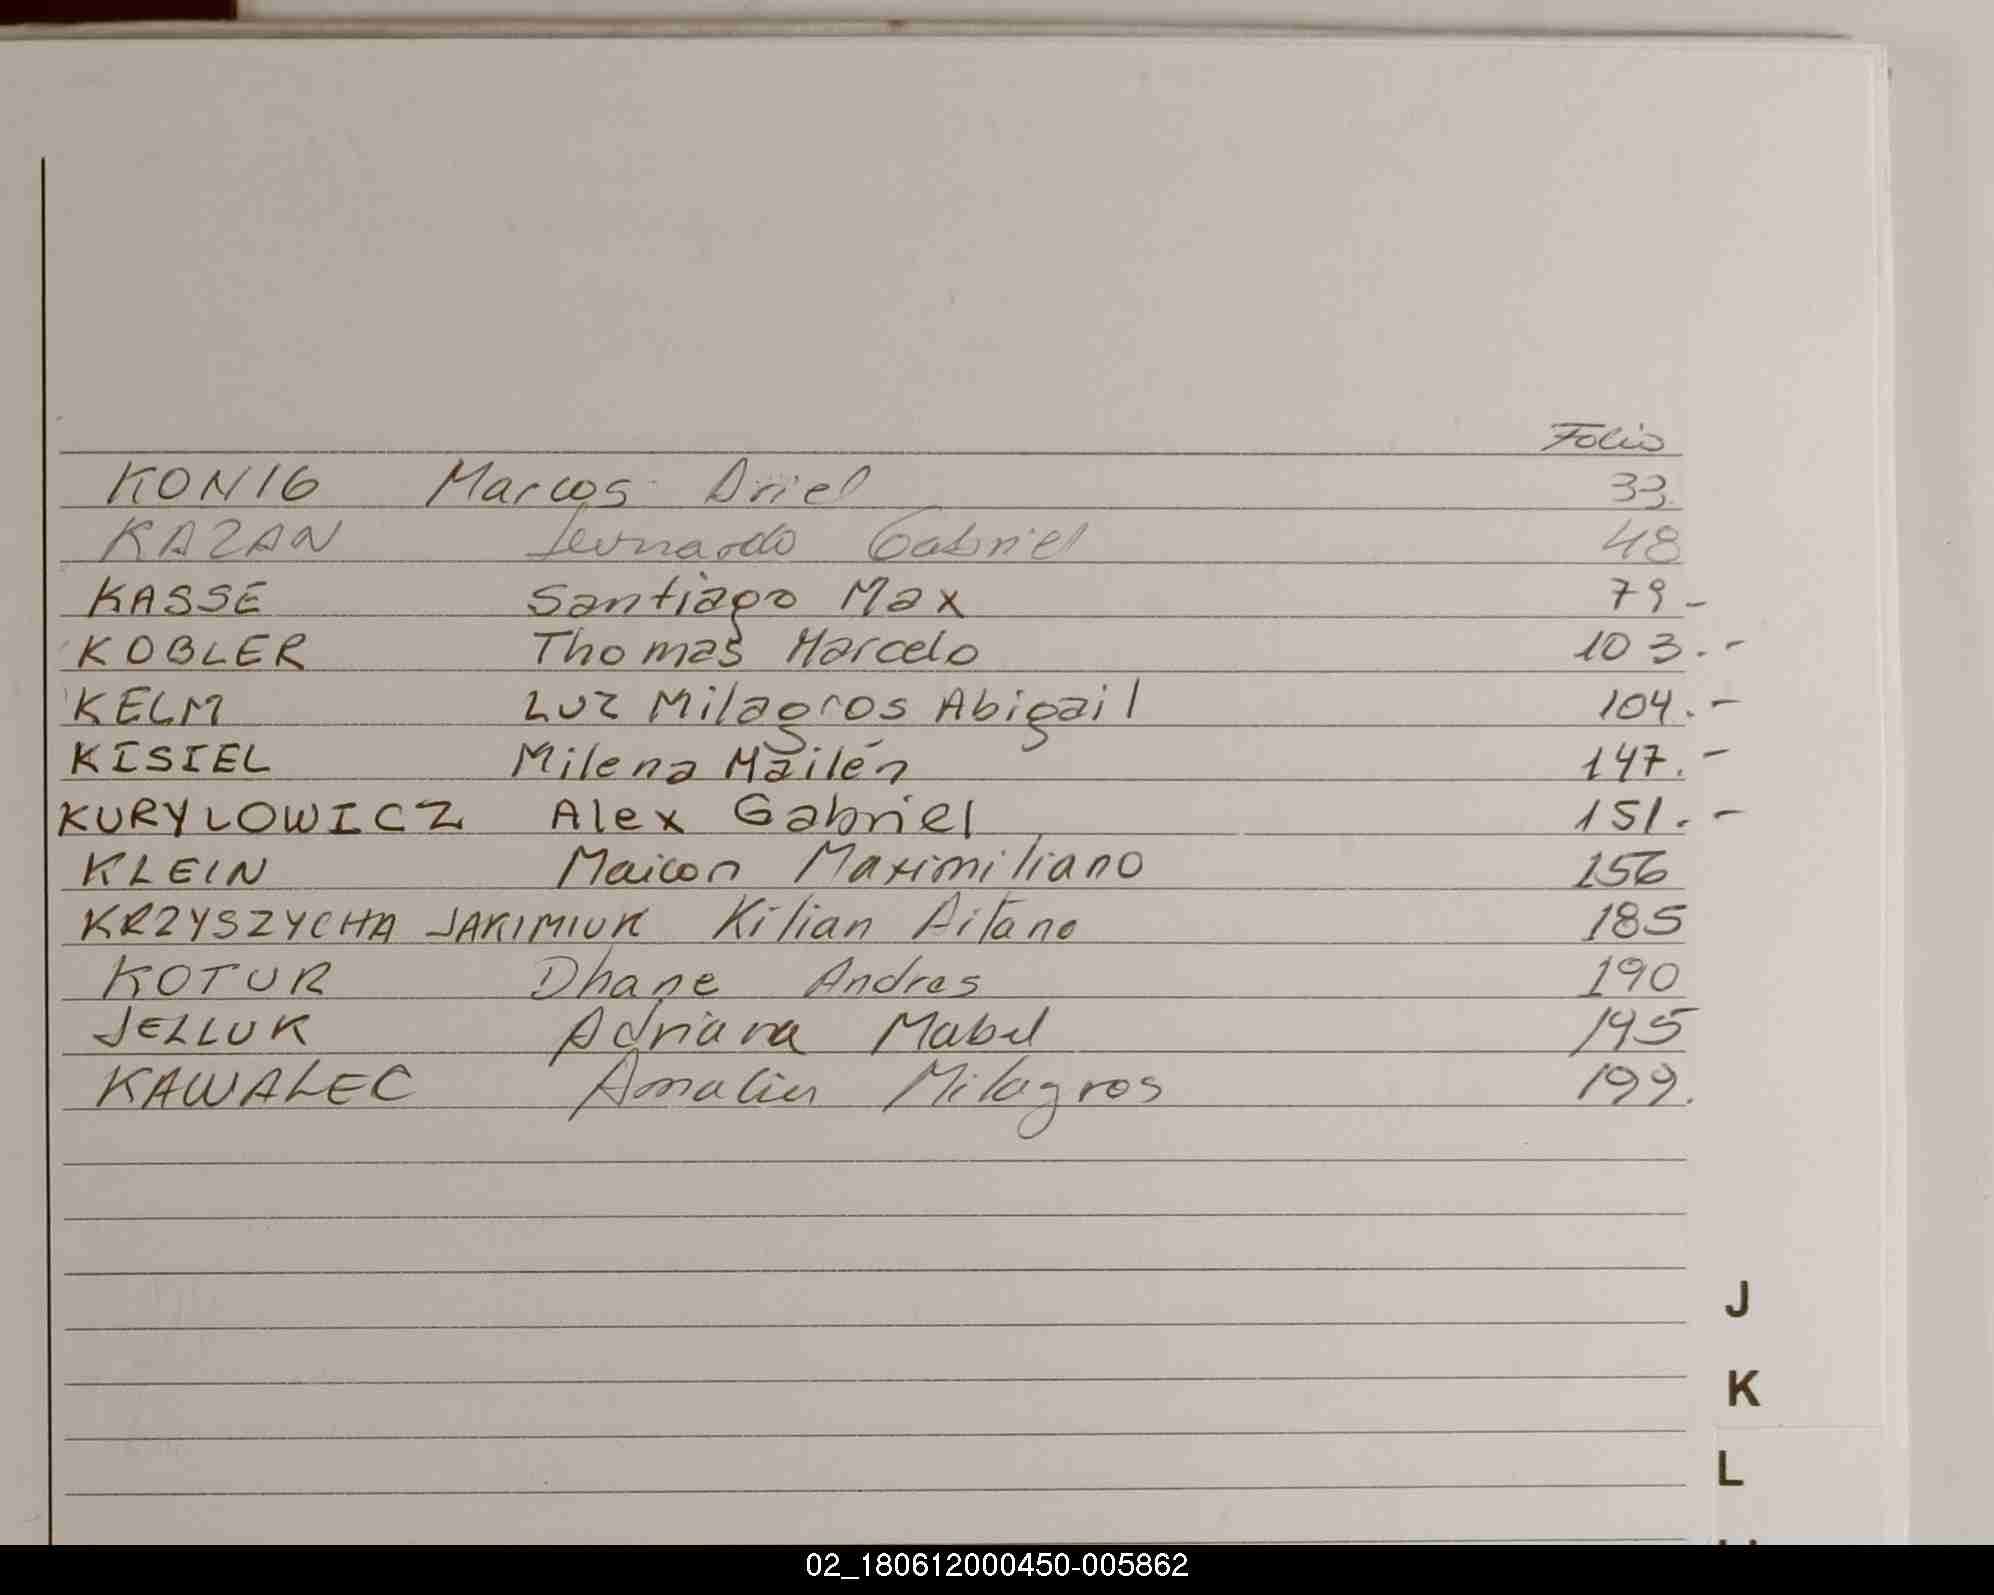 Folio
KONIG Marcos Ariel 33.
KAZAN Leonardo Gabriel 48
KASSE Santiago Max 79-
KOBLER Thomas Marcelo 103.-
KELM Luz Milagros Abigail 104.-
KISIEL Milena Mailén 147.-
KURYLOWICZ Alex Gabriel 151.-
KLEIN Maicon Maximiliano 156
KRZYSZYCHA JAKIMIUK Kilian Aitano 185
KOTUR Dhane Andres 190
JELLUK Adriana Mabel 195
KAWALEC Amalia Milagros 199.
J
K
L
02_180612000450-005862